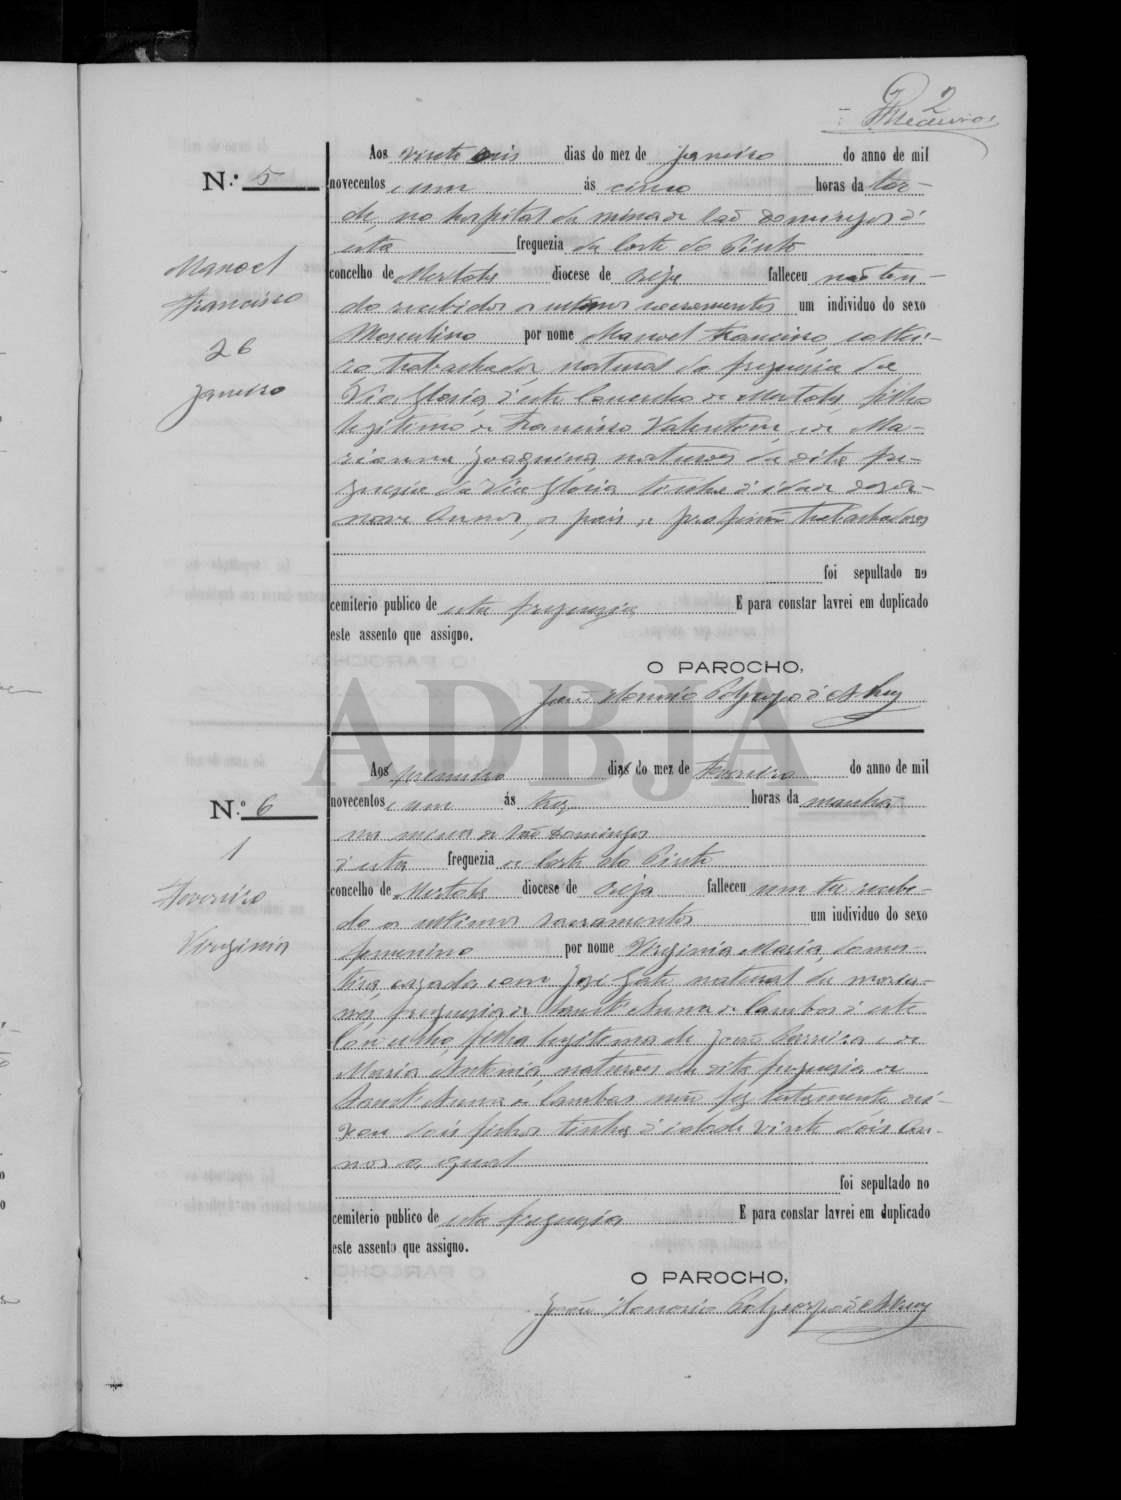 2
Medeiros
Aos vinte seis dias do mez de Janeiro do anno de mil
N.º 5
novecentos e um ás cinco horas da tar-
de, no hospital da mina de São Domingos d'
esta freguezia da Corte do Pinto
Manoel
concelho de Mertola diocese de Beja falleceu não ten-
Francisco
do recebidos os ultimos sacramentos um individuo do sexo
26
Masculino por nome Manoel Francisco, soltei-
ro trabalhador, natural da freguezia da
Janeiro
Via Gloria, d'este Concelho de Mertola, filho
legitimo de Francisco Valentim, e de Ma-
rianna Joaquina, naturaes da dita fre-
guezia da Via Gloria tinha d'idade deza-
nove annos, os pais, de profissão trabalhadores
foi sepultado no
cemiterio publico de esta freguezia E para constar lavrei em duplicado
este assento que assigno.
O PAROCHO,
João Honorio
ADBJA
Ao primeiro dia do mez de Fevereiro do anno de mil
N.º 6
novecentos e um ás trez horas da manhã
na mina de São Domingos
1
d'esta freguezia de Corte do Pinto
Fevereiro
concelho de Mertola diocese de Beja falleceu sem ter recebi-
do os ultimos sacramentos um individuo do sexo
Virginia
femenino por nome Virginia Maria, domes-
tica, cazada com José natural de
freguezia de Sant'Anna de Cambas d'este
Concelho, filha legitema de João Barriga e de
Maria Antonia, naturaes da dita freguezia de
Sant'Anna de Cambas não fez testamento, dei-
xou dois filhos tinha d'idade vinte dois an-
nos a qual
foi sepultado no
cemiterio publico de esta freguezia E para constar lavrei em duplicado
este assento que assigno.
O PAROCHO,
João Honorio